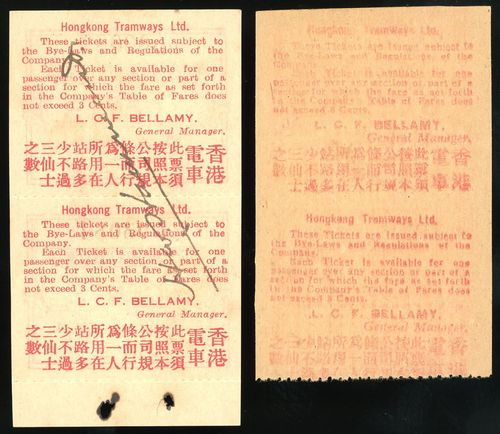 Hongkong Tramways Ltd.
These tickets are issued subject to
the Bye-Laws and Regulations of the
Company.
Each Ticket is available for one
passenger over any section or part of a
section for which the fare as set forth
in the Company's Table of Fares does
not exceed 3 Cents.
L. C. F. BELLAMY,
General Manager.
香港
電車
此票須
按照本
公司規
條而行
為一人
所用在
站路多
少不過
三仙士
之數
Hongkong Tramways Ltd.
These tickets are issued subject to
the Bye-Laws and Regulations of the
Company.
Each Ticket is available for one
passenger over any section or part of a
section for which the fare as set forth
in the Company's Table of Fares does
not exceed 3 Cents.
L. C. F. BELLAMY,
General Manager.
香港
電車
此票須
按照本
公司規
條而行
為一人
所用在
站路多
少不過
三仙士
之數
Hongkong Tramways Ltd.
These Tickets are issued subject to
the Bye-Laws and Regulations of the
Company.
Ticket is available for one
passenger over any section or part of a
section for which the fare as set forth
in the Company's Table of Fares does
not exceed 3 Cents.
L. C. F. BELLAMY,
General Manager.
香港
電車
此票須
按照本
公司規
條而行
為一人
所用在
站路多
少不過
三仙士
之數
Hongkong Tramways Ltd.
These Tickets are issued subject to
the Bye-Laws and Regulations of the
Company.
Each Ticket is available for one
passenger over any section or part of a
section for which the fare as set forth
in the Company's Table of Fares does
not exceed 3 Cents.
L. C. F. BELLAMY,
General Manager.
香港
電車
此票須
按照本
公司規
條而行
為一人
所用在
站路多
少不過
三仙士
之數